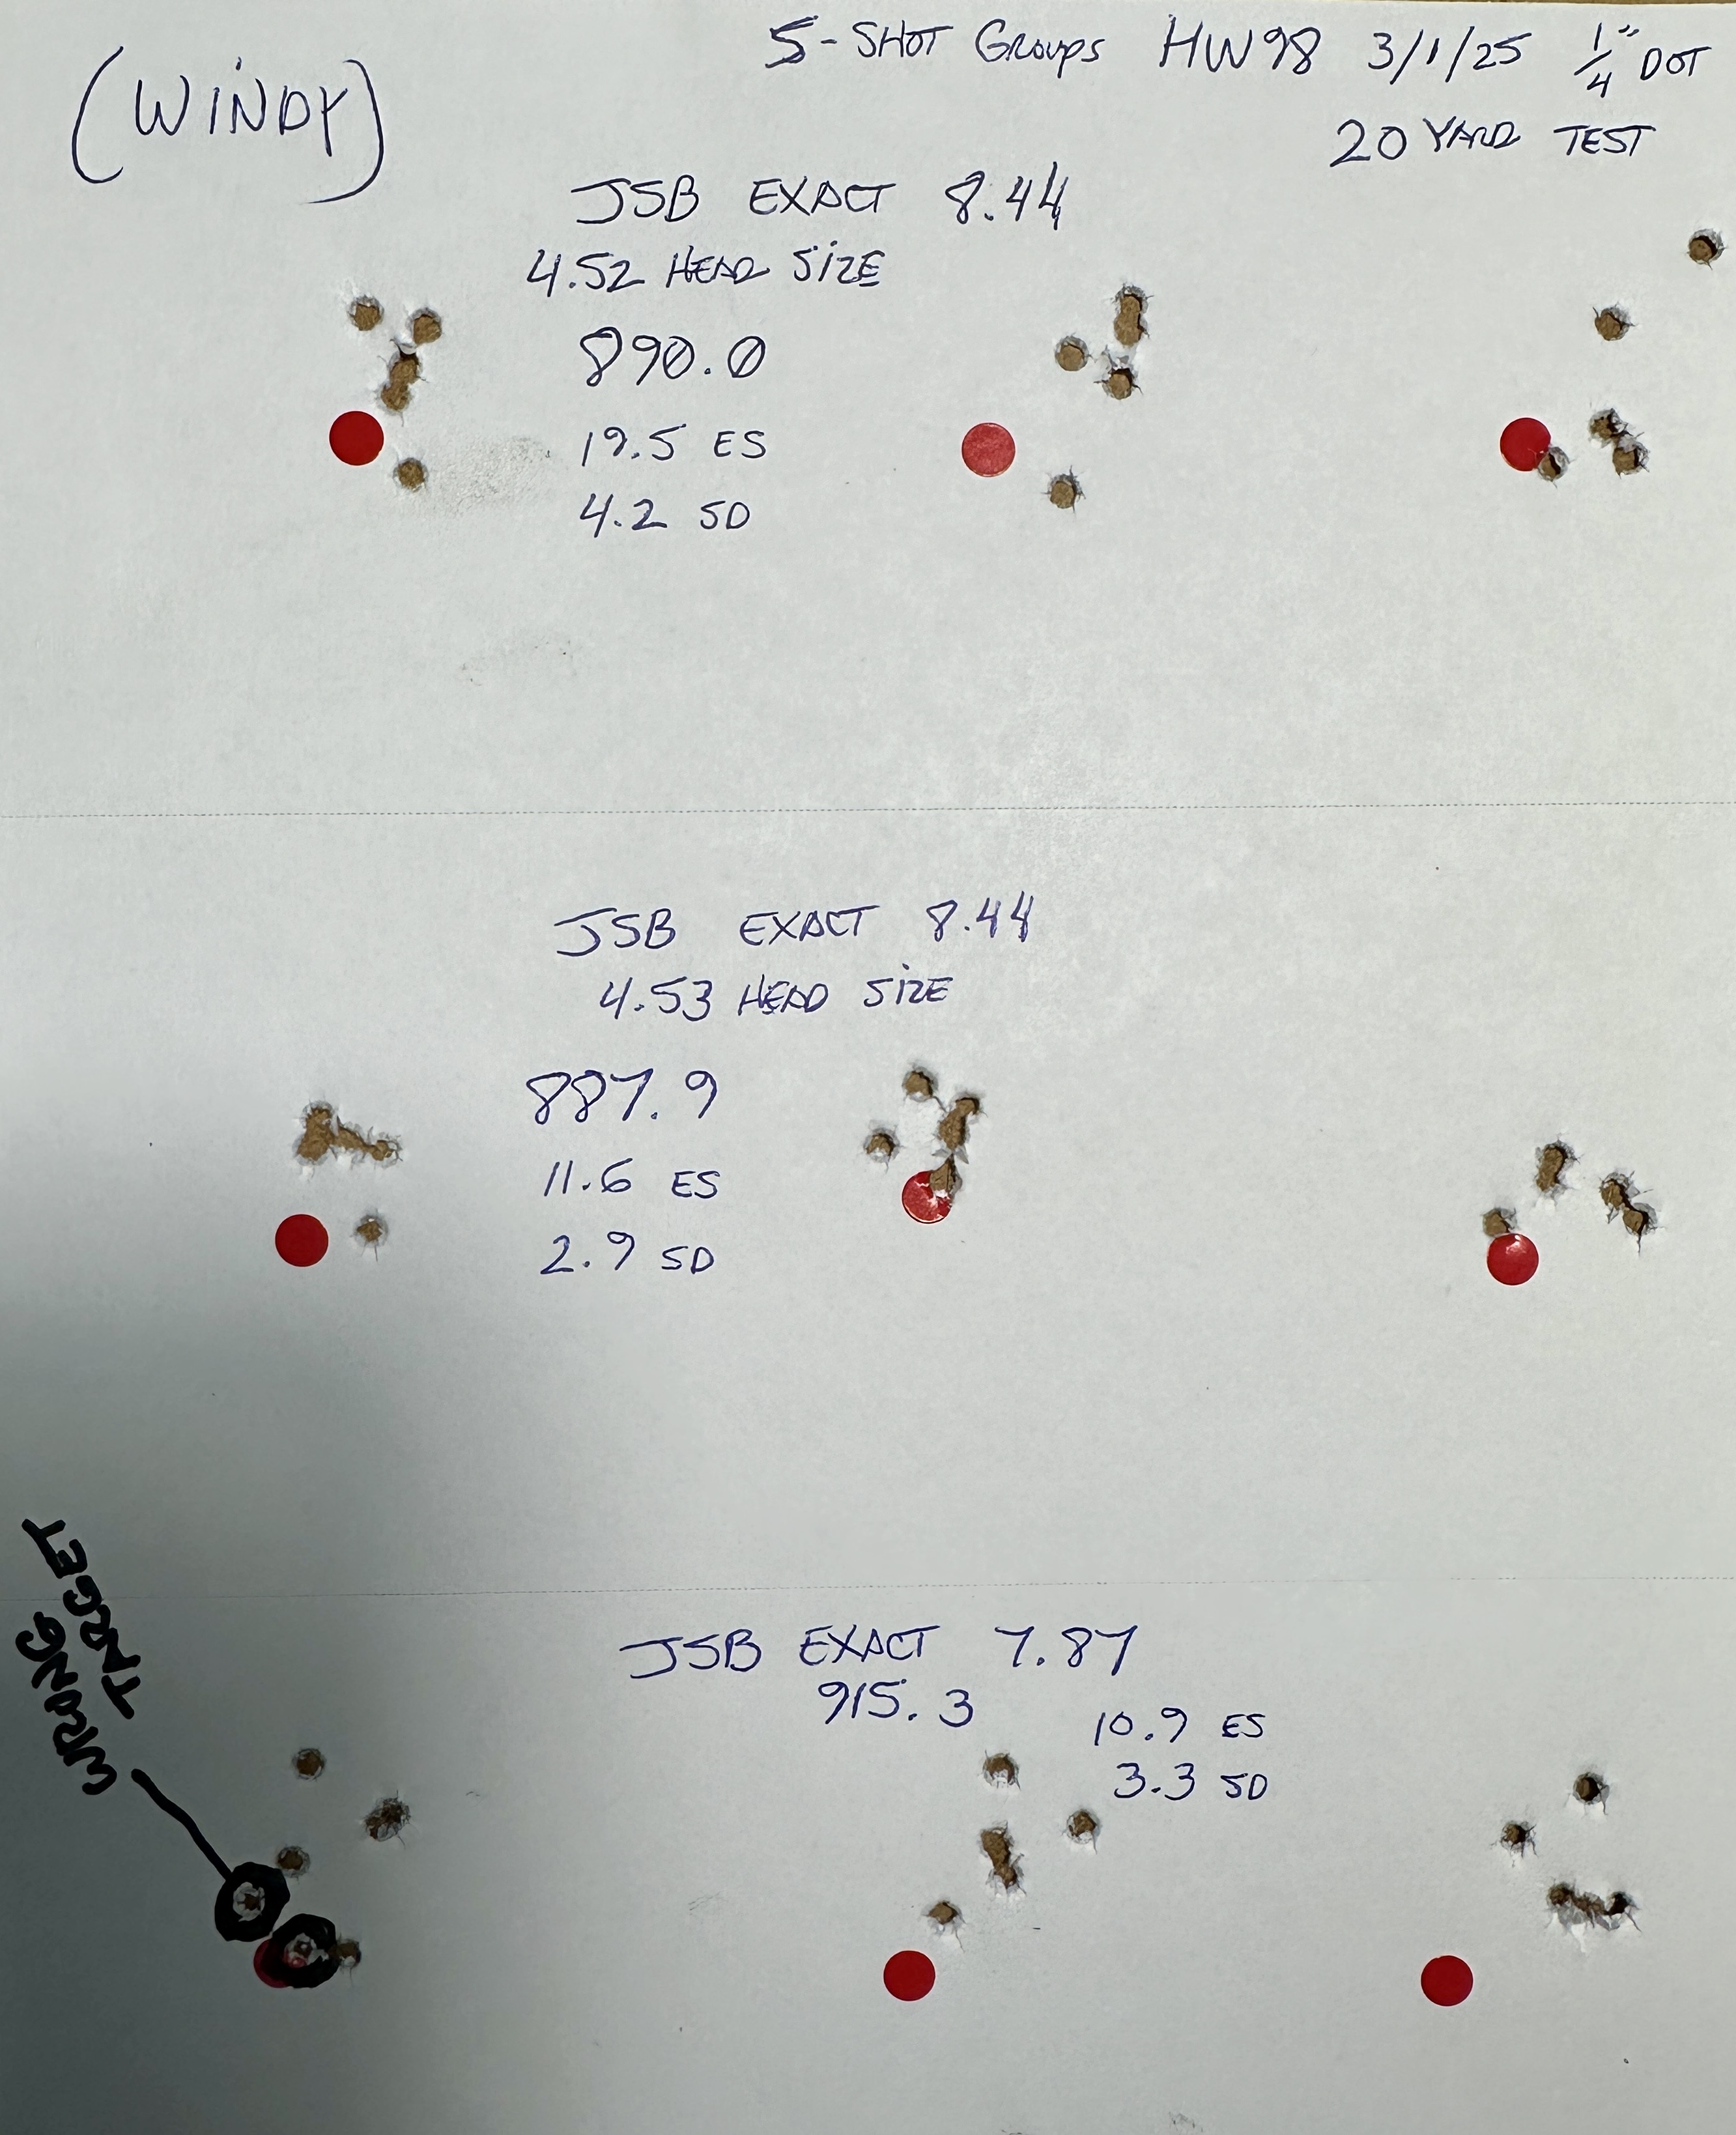 (WINDY)
5-SHOT GROUPS HW98 3/1/25 1/4" DOT
20 YARD TEST
JSB EXACT 8.44
4.52 HEAD SIZE
890.0
19.5 ES
4.2 SD
JSB EXACT 8.44
4.53 HEAD SIZE
887.9
11.6 ES
2.9 SD
WRONG
TARGET
JSB EXACT 7.87
915.3
10.9 ES
3.3 SD